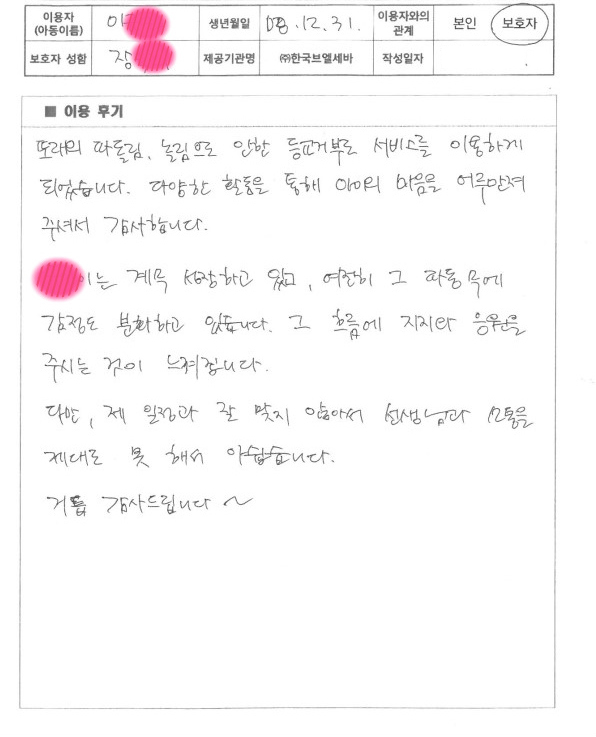 이용자 (아동이름) 이 생년월일 08.12.31. 이용자와의 관계 본인 보호자
보호자 성함 장 제공기관명 ㈜한국브엘세바 작성일자
■ 이용 후기
또래의 따돌림, 놀림으로 인한 등교거부로 서비스를 이용하게
되었습니다. 다양한 활동을 통해 아이의 마음을 어루만져
주셔서 감사합니다.
이는 계속 성장하고 있고, 여전히 그 파동 속에
감정도 분화하고 있습니다. 그 흐름에 지지와 응원을
주시는 것이 느껴집니다.
다만, 제 일정과 잘 맞지 않아서 선생님과 소통을
제대로 못 해서 아쉽습니다.
거듭 감사드립니다 ~